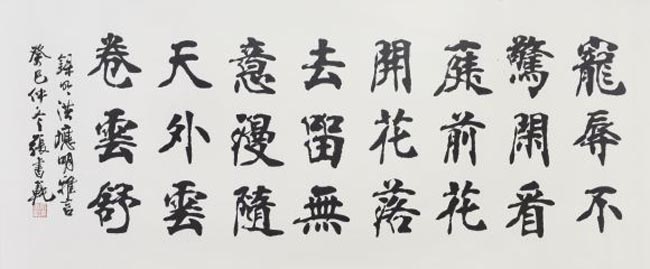 寵辱不
驚閑看
庭前花
開花落
去留無
意漫隨
天外雲
卷雲舒
錄明洪應明雅言
癸巳仲冬張書範